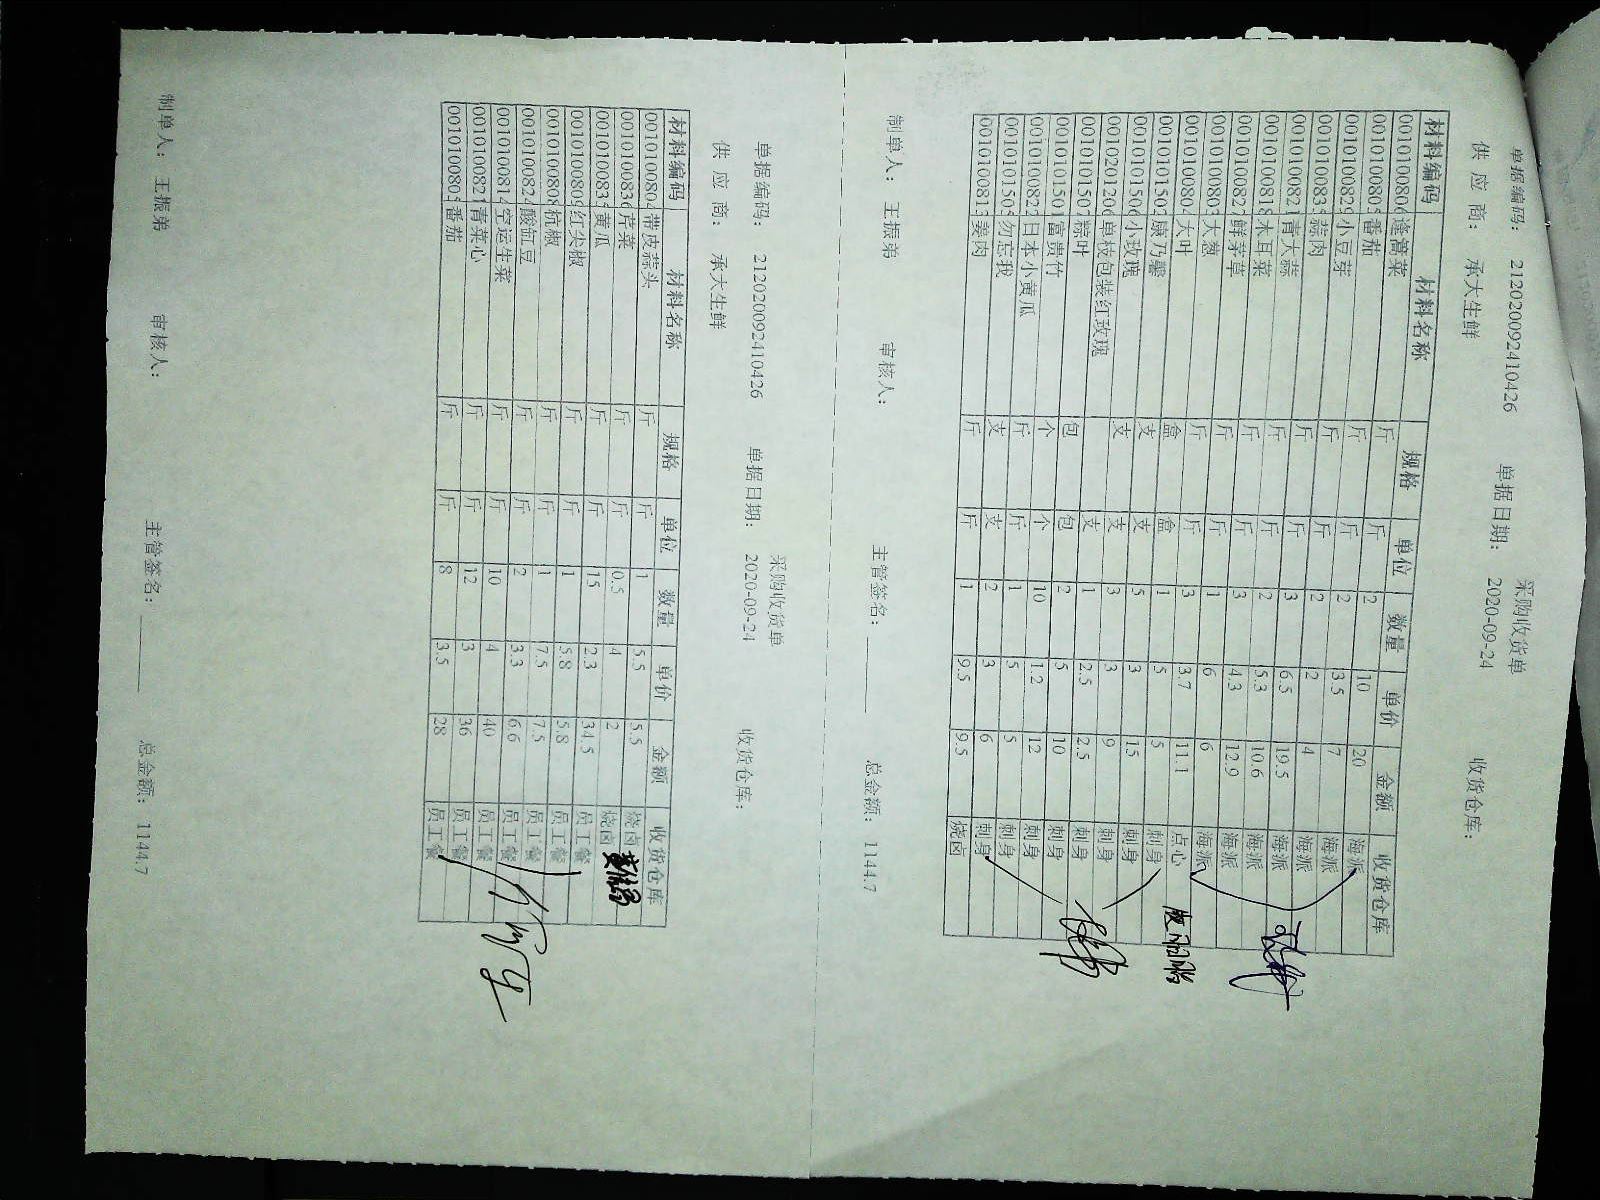 采购收货单
单据编码: 212020092410426 单据日期: 2020-09-24 收货仓库:
供 应 商: 承大生鲜
材料编码 材料名称 规格 单位 数量 单价 金额 收货仓库
0010100806 蓬蒿菜 斤 斤 2 10 20 海派
0010100805 番茄 斤 斤 2 3.5 7 海派
0010100829 小豆芽 斤 斤 2 2 4 海派
0010100835 蒜肉 斤 斤 3 6.5 19.5 海派
0010100821 青大蒜 斤 斤 2 5.3 10.6 海派
0010100818 木耳菜 斤 斤 3 4.3 12.9 海派
0010100827 鲜茅草 斤 斤 1 6 6 海派
0010100803 大葱 斤 斤 3 3.7 11.1 点心
0010100804 大叶 盒 盒 1 5 5 刺身
0010101502 康乃馨 支 支 5 3 15 刺身
0010101506 小玫瑰 支 支 3 3 9 刺身
0010201206 单枝包装红玫瑰 支 1 2.5 2.5 刺身
0010101507 粽叶 包 包 2 5 10 刺身
0010101501 富贵竹 个 个 10 1.2 12 刺身
0010100822 日本小黄瓜 斤 斤 1 5 5 刺身
0010101505 勿忘我 支 支 2 3 6 刺身
0010100813 姜肉 斤 斤 1 9.5 9.5 烧卤
制单人: 王振弟 审核人: 主管签名: 总金额: 1144.7
采购收货单
单据编码: 212020092410426 单据日期: 2020-09-24 收货仓库:
供 应 商: 承大生鲜
材料编码 材料名称 规格 单位 数量 单价 金额 收货仓库
0010100804 带皮蒜头 斤 斤 1 5.5 5.5 烧卤
0010100836 芹菜 斤 斤 0.5 4 2 烧卤
0010100835 黄瓜 斤 斤 15 2.3 34.5 员工餐
0010100809 红尖椒 斤 斤 1 5.8 5.8 员工餐
0010100808 杭椒 斤 斤 1 7.5 7.5 员工餐
0010100824 酸缸豆 斤 斤 2 3.3 6.6 员工餐
0010100814 空运生菜 斤 斤 10 4 40 员工餐
0010100821 青菜心 斤 斤 12 3 36 员工餐
0010100805 番茄 斤 斤 8 3.5 28 员工餐
制单人: 王振弟 审核人: 主管签名: 总金额: 1144.7